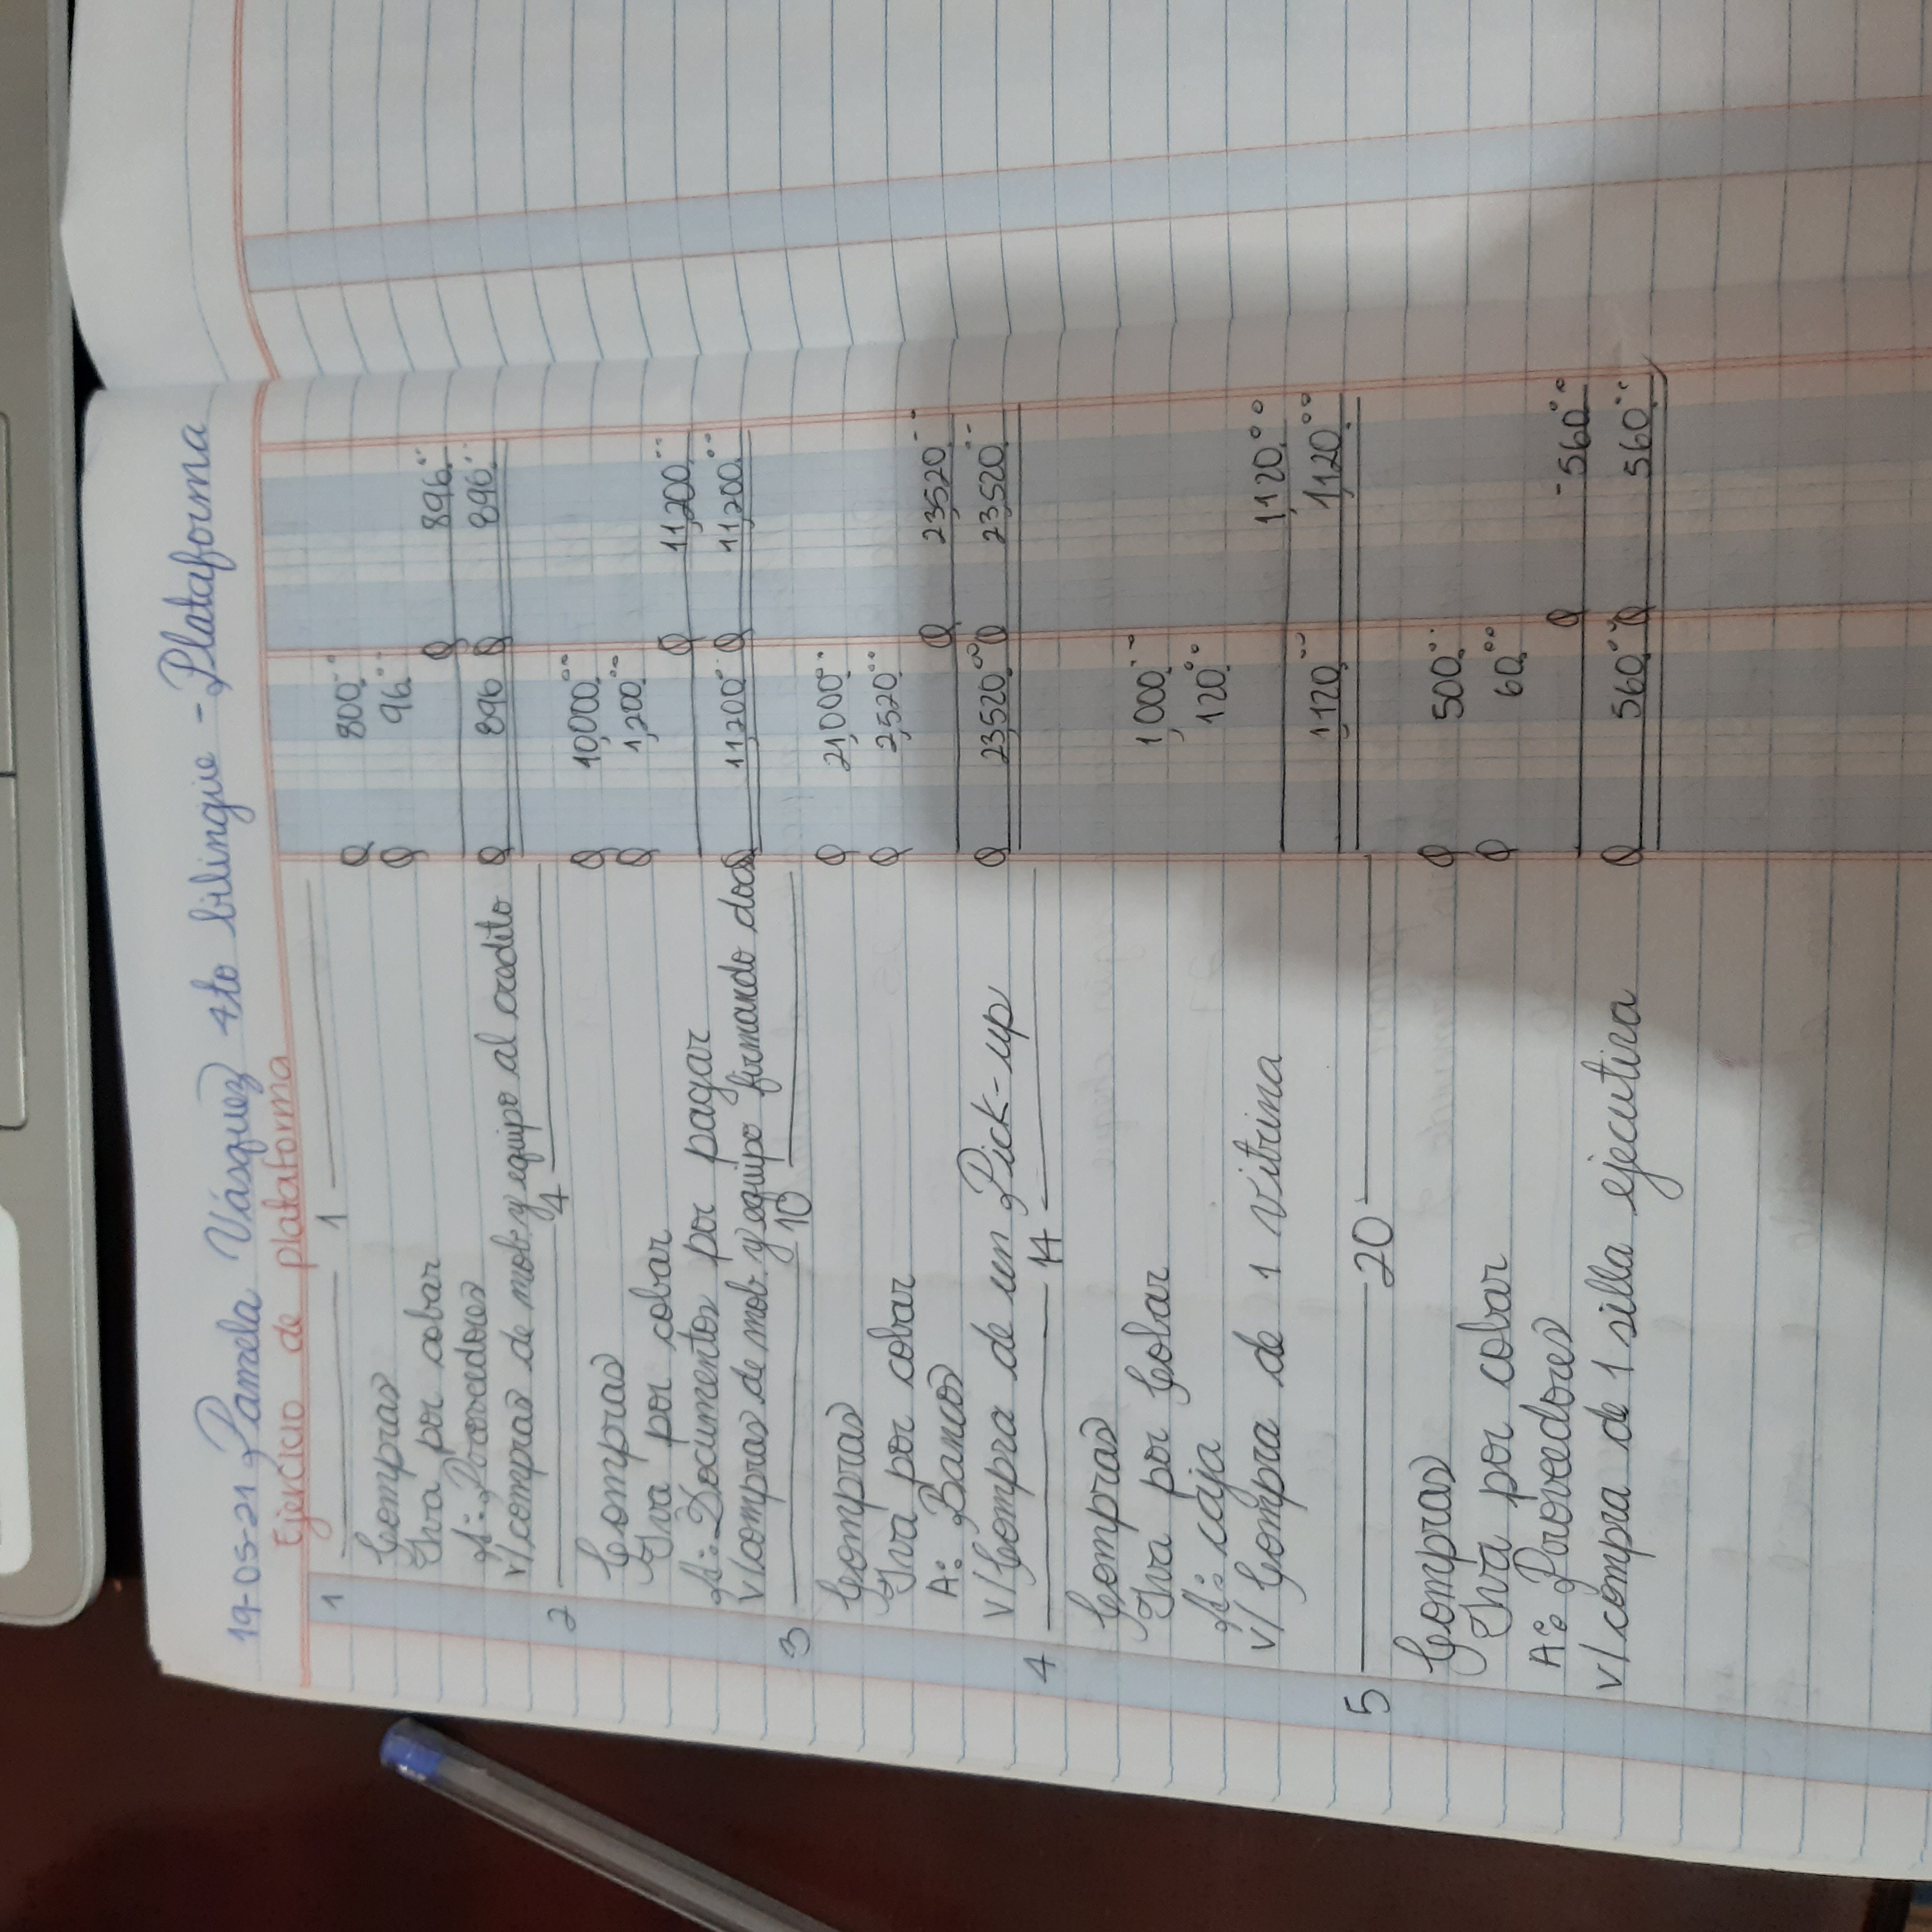 19-05-21 Pamela Vásquez 4to bilingüe - Plataforma
Ejercicio de plataforma
1 1
Compras Q 800.00
Iva por cobar Q 96.00
A: Proveedores Q 896.00
v/compras de mob. y equipo al credito Q 896 Q 896.00
2 4
Compras Q 10,000.00
Iva por cobar Q 1,200.00
A: Documentos por pagar Q 11,200.00
v/compras de mob. y equipo firmando docs Q 11,200.00 Q 11,200.00
3 10
Compras Q 21,000.00
Iva por cobar Q 2,520.00
A: Bancos Q 23,520.00
V/Compra de un Pick-up Q 23,520.00 Q 23,520.00
4 14
Compras 1,000.00
Iva por Cobar 120.00
A: caja 1,120.00
V/ Compra de 1 vitrina 1,120.00 1,120.00
5 20
Compras Q 500.00
Iva por cobar Q 60.00
A: Proveedores Q 560.00
v/compra de 1 silla ejecutiva Q 560.00 Q 560.00